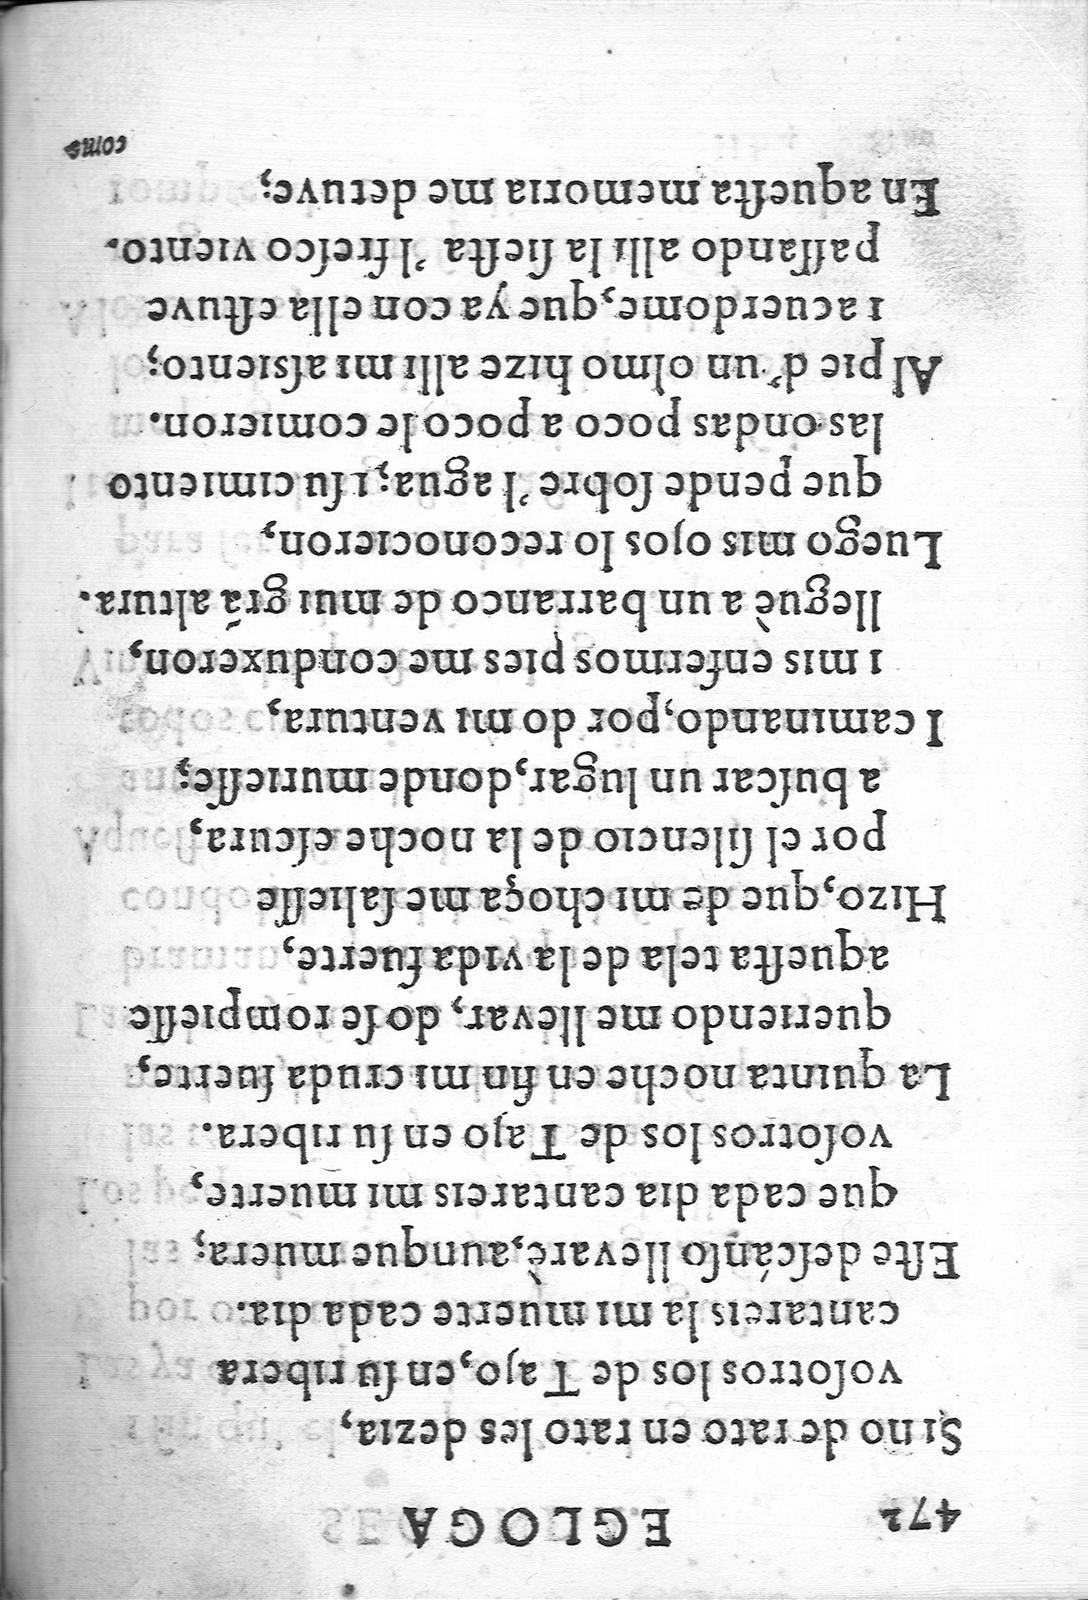 472 EGLOGA
Si no de rato en rato les dezia,
vosotros los de Tajo, en su ribera
cantareis la mi muerte cada dia.
Este descánso llevarè, aunque muera;
que cada dia cantareis mi muerte,
vosotros los de Tajo en su ribera.
La quinta noche en fin mi cruda suerte,
queriendo me llevar, do se rompiesse
aquesta tela de la vida fuerte,
Hizo, que de mi choça me saliesse
por el silencio de la noche escura,
a buscar un lugar, donde muriesse;
I caminando, por do mi ventura,
i mis enfermos pies me conduxeron,
lleguè a un barranco de mui grã altura.
Luego mis ojos lo reconocieron,
que pende sobre 'l agua; i su cimiento
las ondas poco a poco le comieron.
Al pie d' un olmo hize alli mi assiento;
i acuerdome, que ya con ella estuve
passando alli la siesta 'l fresco viento.
En aquesta memoria me detuve;
como